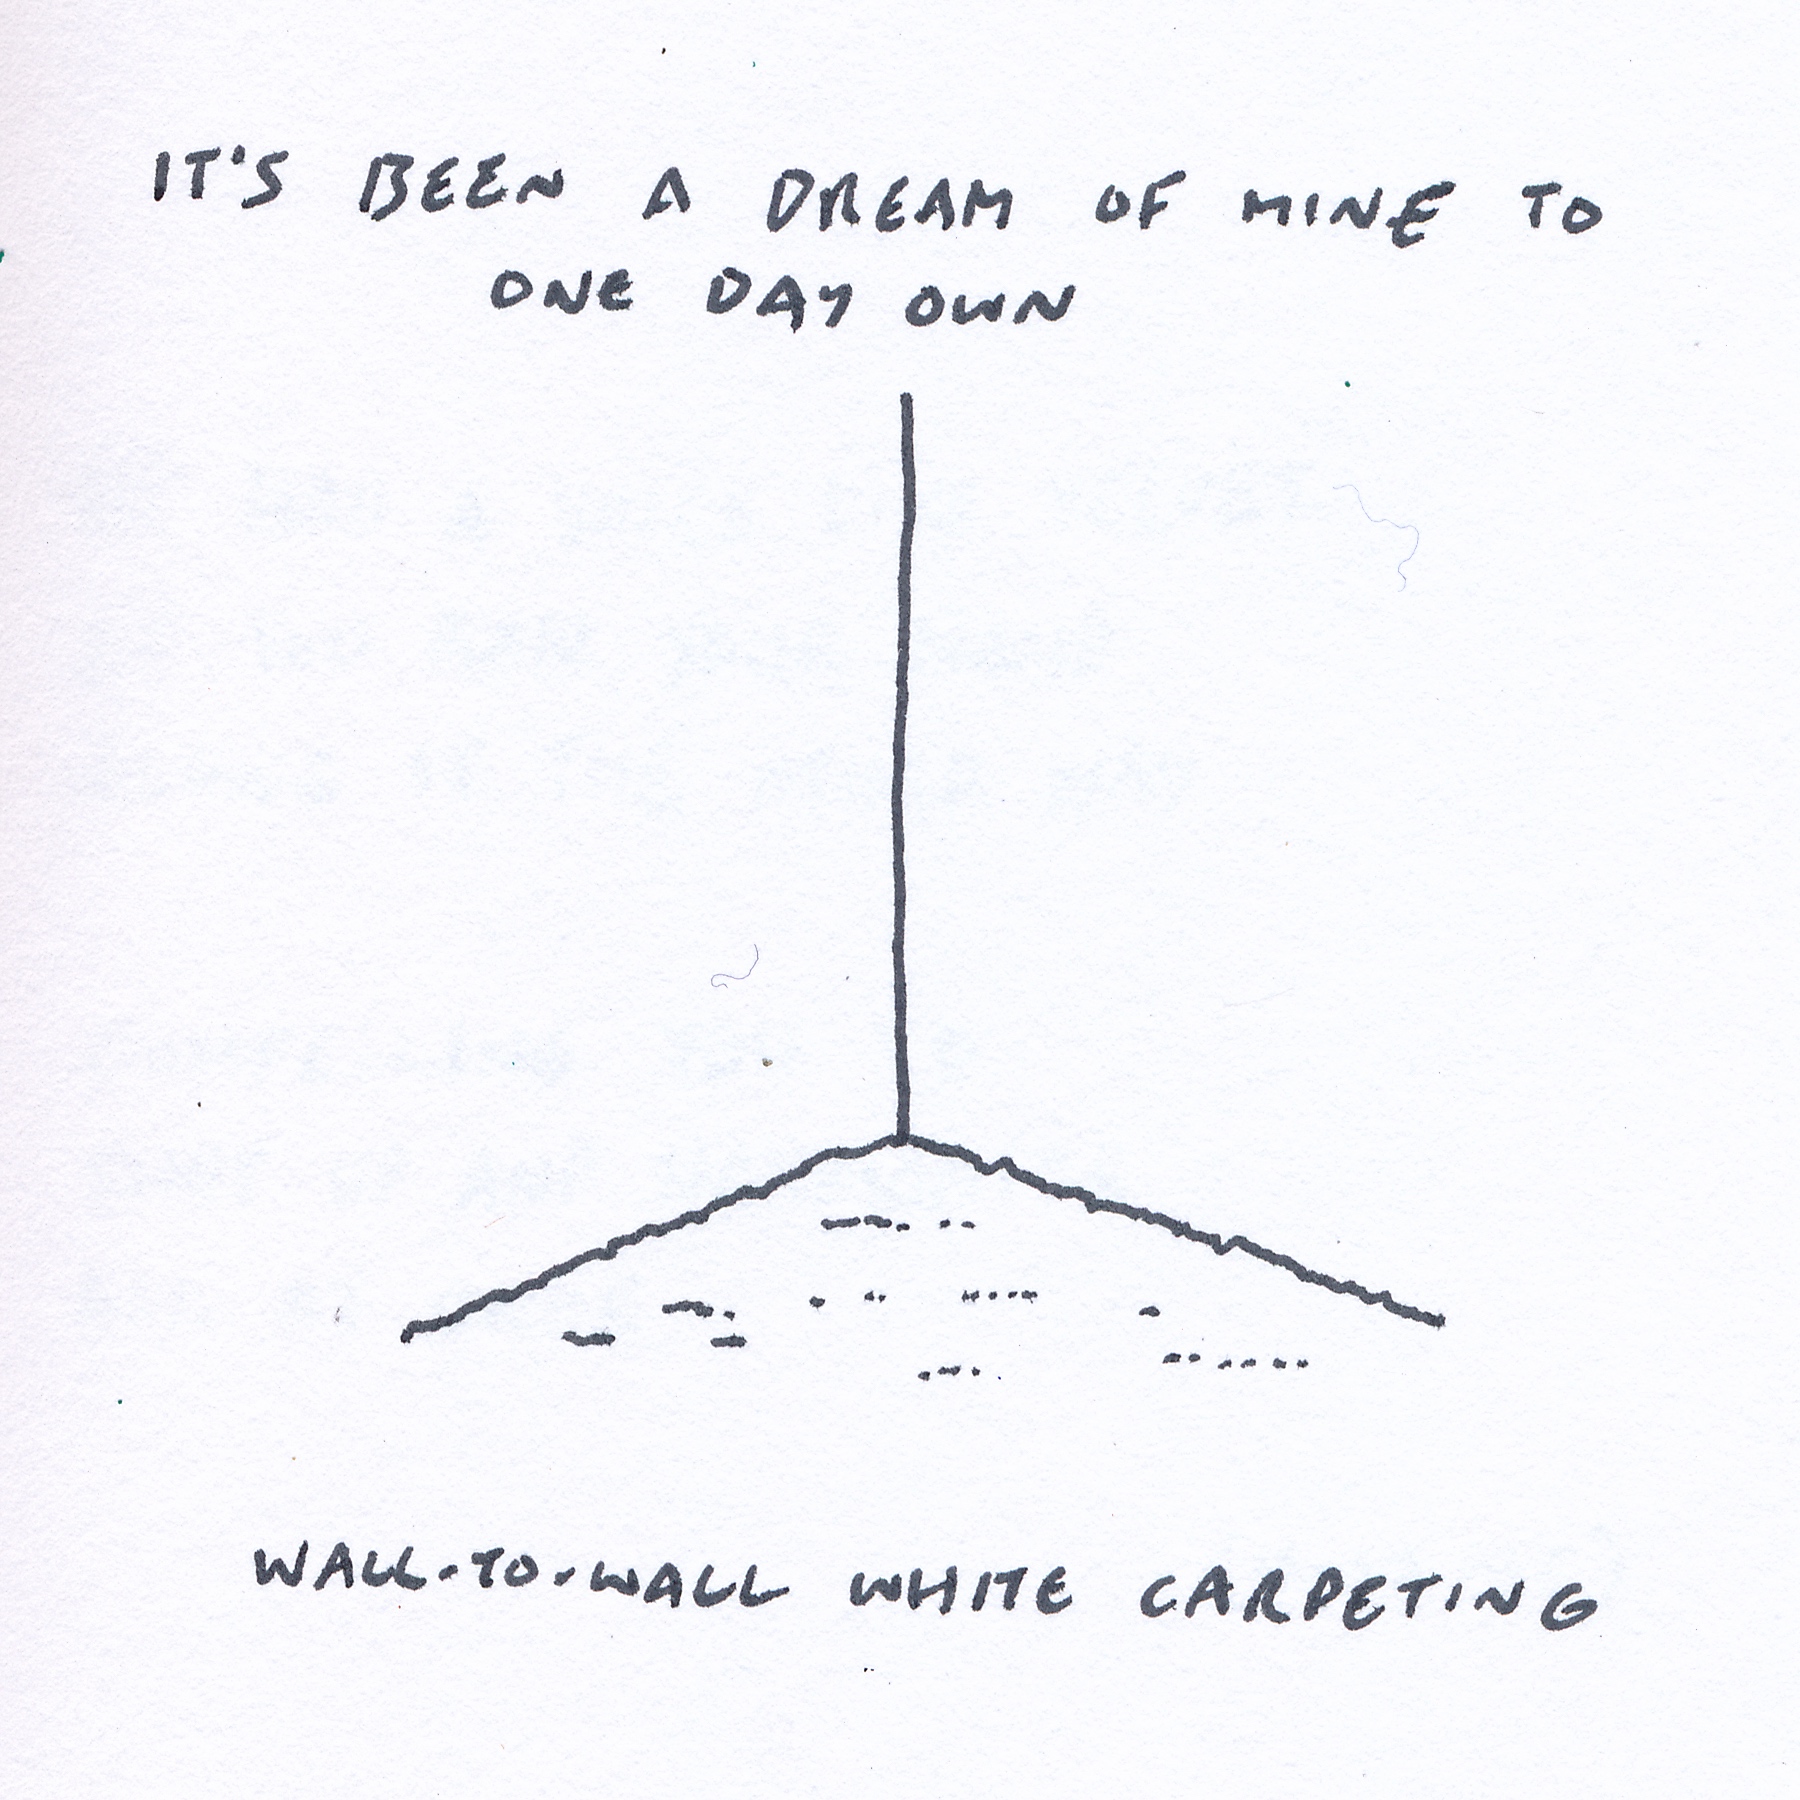 IT'S BEEN A DREAM OF MINE TO
ONE DAY OWN
WALL-TO-WALL WHITE CARPETING